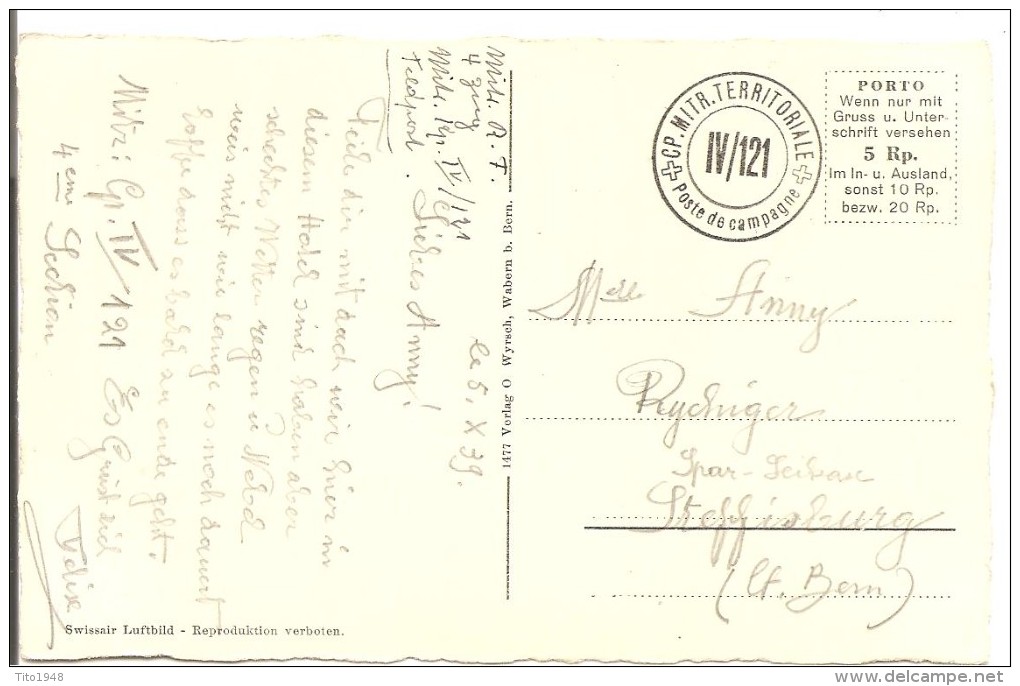 Mitr. R. F.
4 Zug
Mitr. Kp. IV/121
Feldpost.
le 5. X 39.
Liebes Anny!
Teile dir mit dach wir hier in
diesem Hotel sind haben aber
schechtes Wetter regen u Nebel
weis nicht wie lange es noch dauert
hoffe dass es bald zu ende geht.
Es Grüst dich
Felix
Mitr: Cp. IV/121
4 eme Section
Swissair Luftbild - Reproduktion verboten.
1477 Verlag O Wyrsch, Wabern b. Bern.
CP. MITR. TERRITORIALE
IV/121
Poste de campagne
PORTO
Wenn nur mit
Gruss u. Unter-
schrift versehen
5 Rp.
im In- u. Ausland,
sonst 10 Rp.
bezw. 20 Rp.
Melle Anny
Rychiger
Spar-Leihkasse
Steffisburg
(Ct. Bern)
Tito1948
delcampe.net